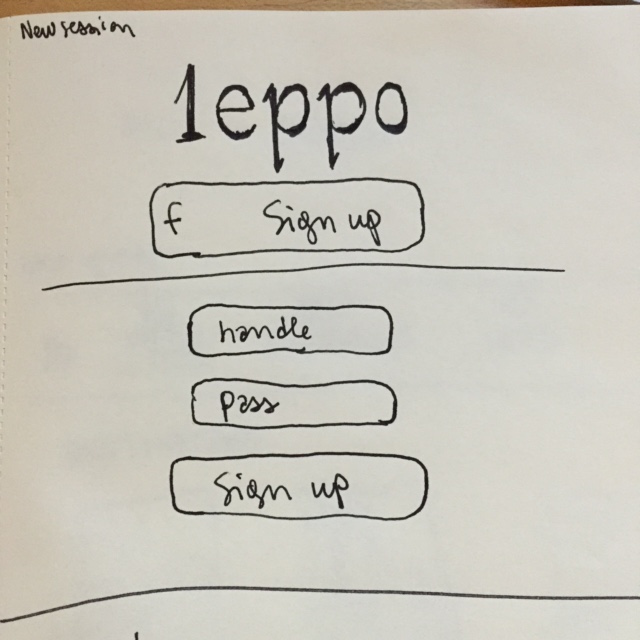 New session
leppo
f Sign up
handle
pass
Sign up